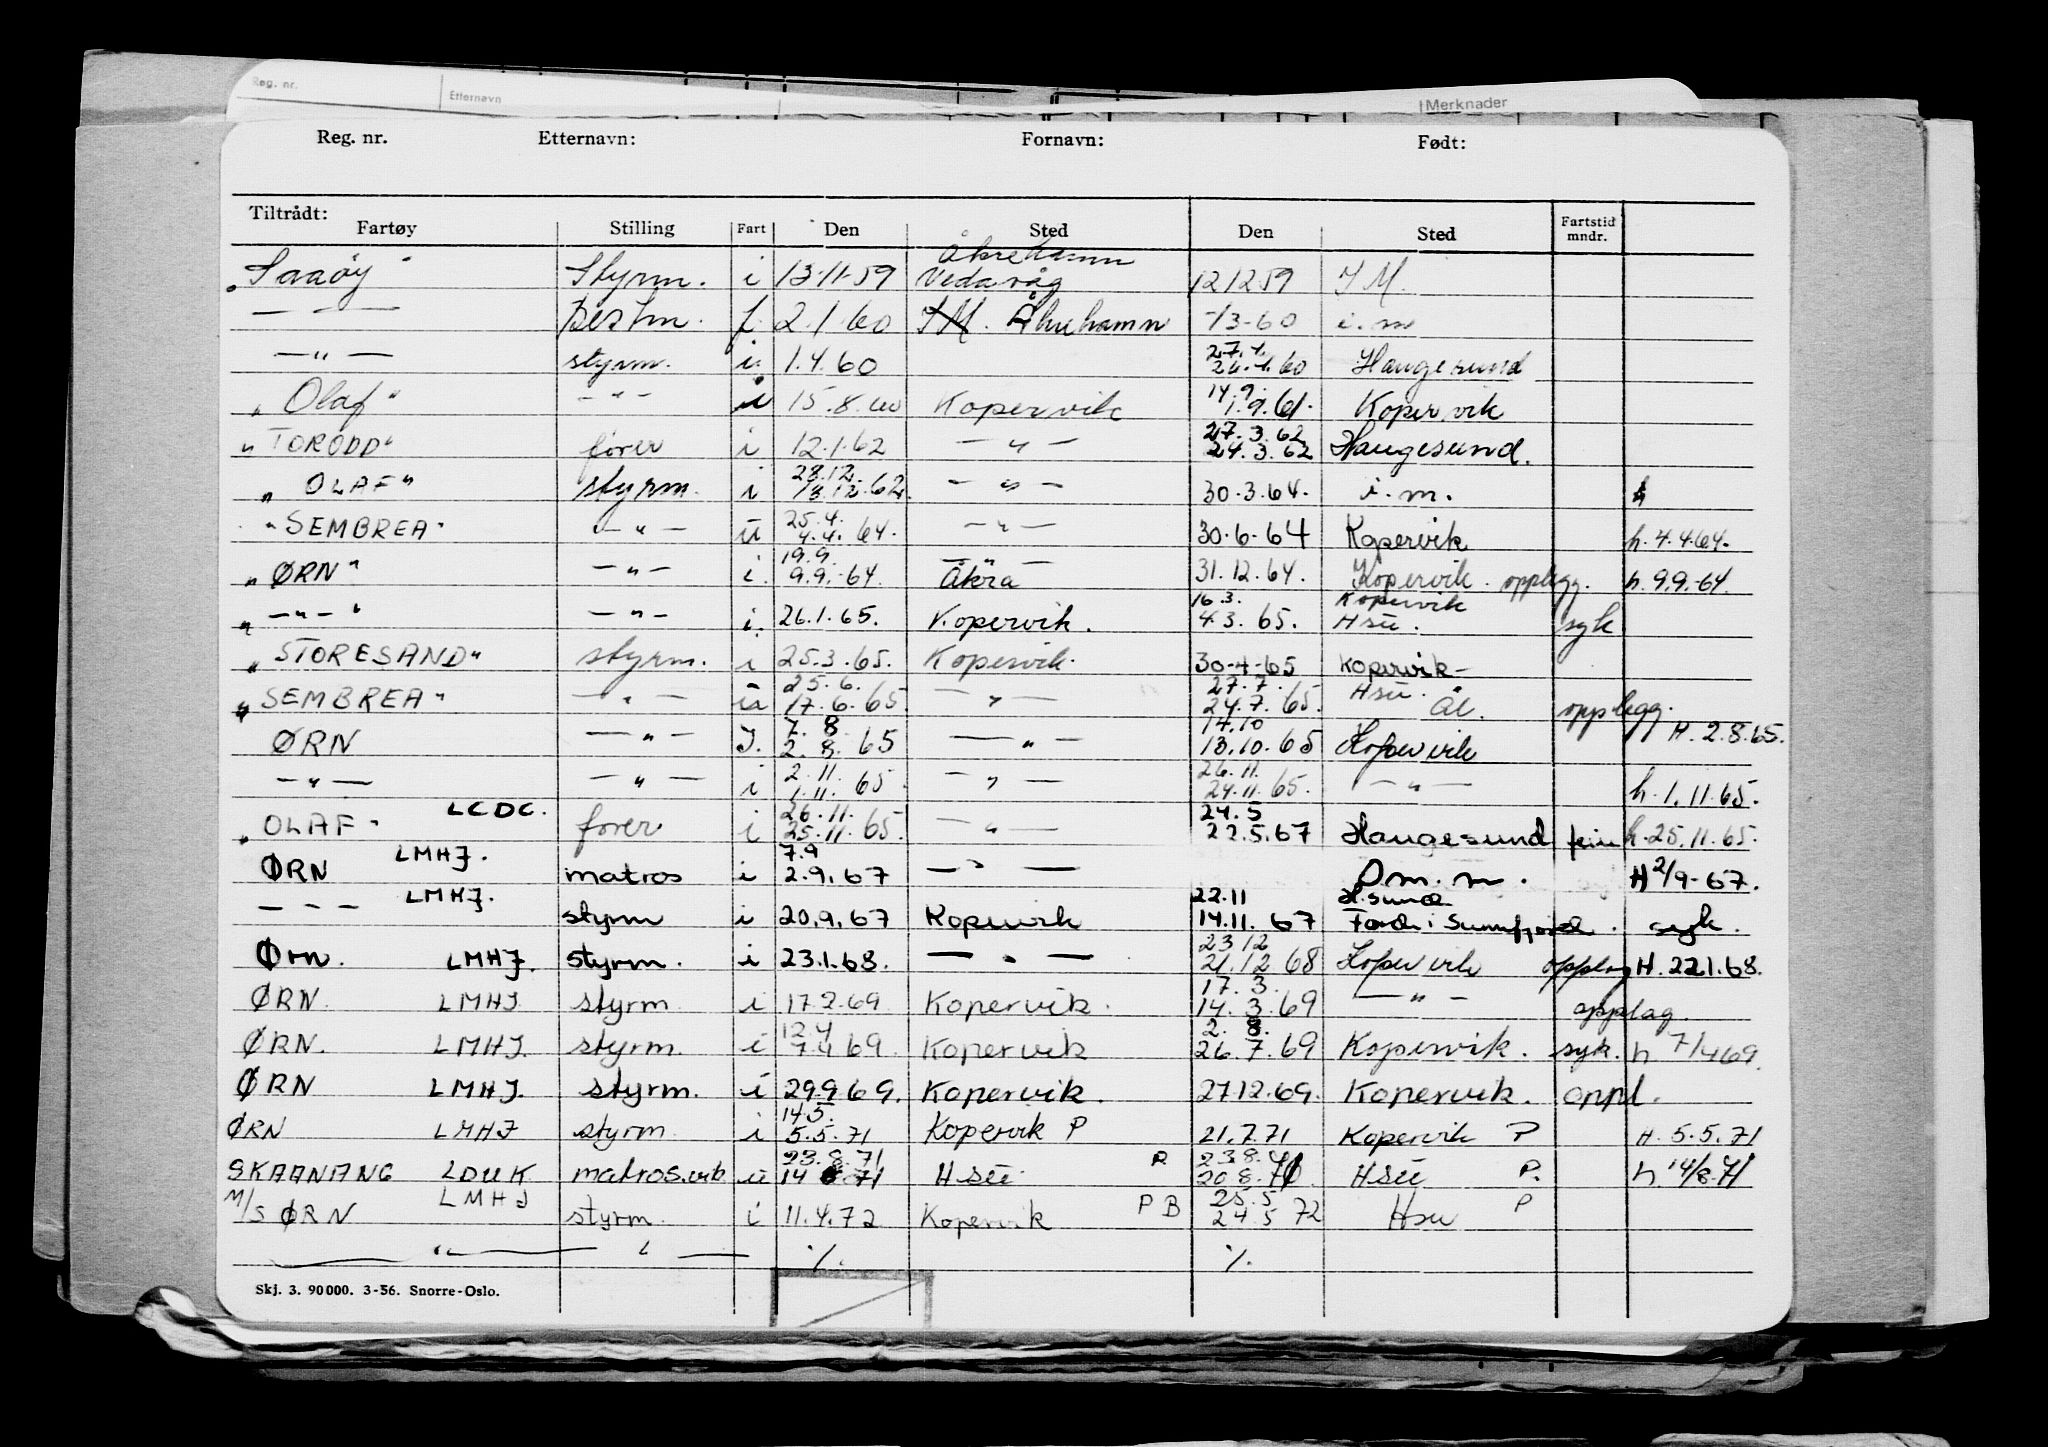 Reg. nr. Etternavn Merknader
Reg. nr. Etternavn: Fornavn: Født:
Tiltrådt:
Fartøy Stilling Fart Den Sted Den Sted Fartstid mndr.
Åkrehamn
Styrm. i 13-11-59 Vedavåg 12 12 59 I M.
— " — Bestm. f. 2.1.60 Åkrehamn -/3-60 i.m
27.4.
— " — styrm. i. 1.4.60 26.4.60 Haugesund
14.9.
" Olaf " - " - i 15.8.60 Kopervik 1.9.61. Kopervik
27.3.62
" TORODD " fører i 12.1.62 — " — 24.3.62 Haugesund.
28.12.
" OLAF " styrm. i 18.12.62. — " — 30.3.64. i.m.
25.4.
" SEMBREA " — " — u 4.4.64. — " — 30-6-64 Kopervik h. 4.4.64.
19.9.
" ØRN " — " — i. 9.9.-64. Åkra 31.12.64. Kopervik. opplegg. h. 9.9.-64.
16.3. Kopervik
" — " — " — " — i. 26.1.65. Kopervik. 4.3.65. Hsu. syk
" STORESAND " styrm. i 25.3.65. Kopervik. 30-4-65 Kopervik-
25.6. 27.7. Hsu.
" SEMBREA " — " — 17.6.65 — " — 24.7.65. Ål. opplegg.
7.8. 14.10
ØRN — " — I. 2.8.65 — " — 13.10.65 Kopervik H. 2.8.65.
2.11. 26.11.
— " — — " — i 1.11.65 — " — 24.11.65. — " — h. 1.11.65.
26.11. 24.5
" OLAF " LCDC. fører i 25.11.65. — " — 22.5.67 Haugesund ferie h. 25.11.65.
7.9
ØRN LMHJ. matros i 2.9.67 — " — Om. m. H 2/9-67.
22.11 H.sund
— — — LMHJ. styrm i 20.9.67 Kopervik 14.11.67 Førde i Sunnfjord. syk.
23 12
Ørn. LMHJ. styrm. i 23.1.68. — " — 21.12 68 Kopervik opplag H. 22.1.68.
17.3.
ØRN. LMHJ. styrm. i 17.2.69 Kopervik. 14.3.69 — " — opplag.
12.4 2.8.
ØRN. LMHJ. styrm. i 7.4 69. Kopervik 26.7.69 Kopervik. syk. h 7/4 69.
ØRN LMHJ. styrm. i 29.9 69. Kopervik. 27.12.69. Kopervik. oppl.
14.5.
ØRN LMHJ styrm. i 5.5.71 Kopervik P 21.7.71 Kopervik P H. 5.5.71
23.8.71 23.8.71
SKAANANG LDUK matros.vib u 14 8 71 Hsu. P 20.8.71 Hsu P. h. 14/8.71
25.5
M/S ØRN LMHJ styrm. i 11.4.72 Kopervik P B 24.5 72 Hsu P
— " — — " — %. %.
Skj. 3. 90 000. 3-56. Snorre-Oslo.